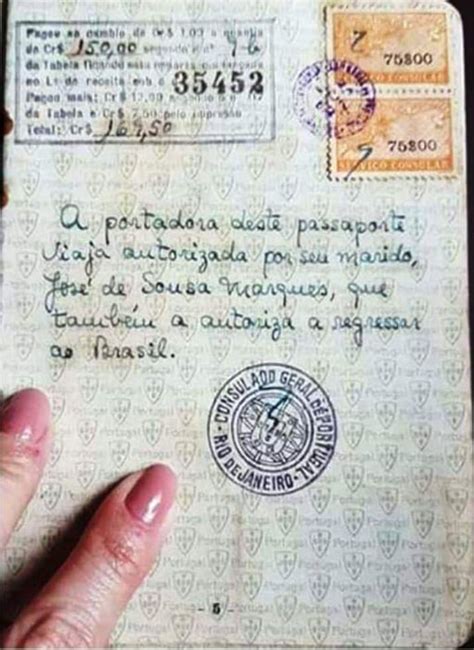 Pagou ao cambio de Cr$ 1,00 a quantia
de Cr$ 150,00 segundo o nº
da Tabela ficando esta
no Lº de receita sob o 35452
Pagou mais: Cr$
da Tabela e Cr$ 7,50 pelo impresso
Total: Cr$ 169,50
75$00
SERVIÇO CONSULAR
75$00
SERVIÇO CONSULAR
A portadora deste passaporte
viaja autorizada por seu marido,
José de Sousa Marques, que
também a autoriza a regressar
ao Brasil.
CONSULADO GERAL DE PORTUGAL
RIO DE JANEIRO
- 5 -